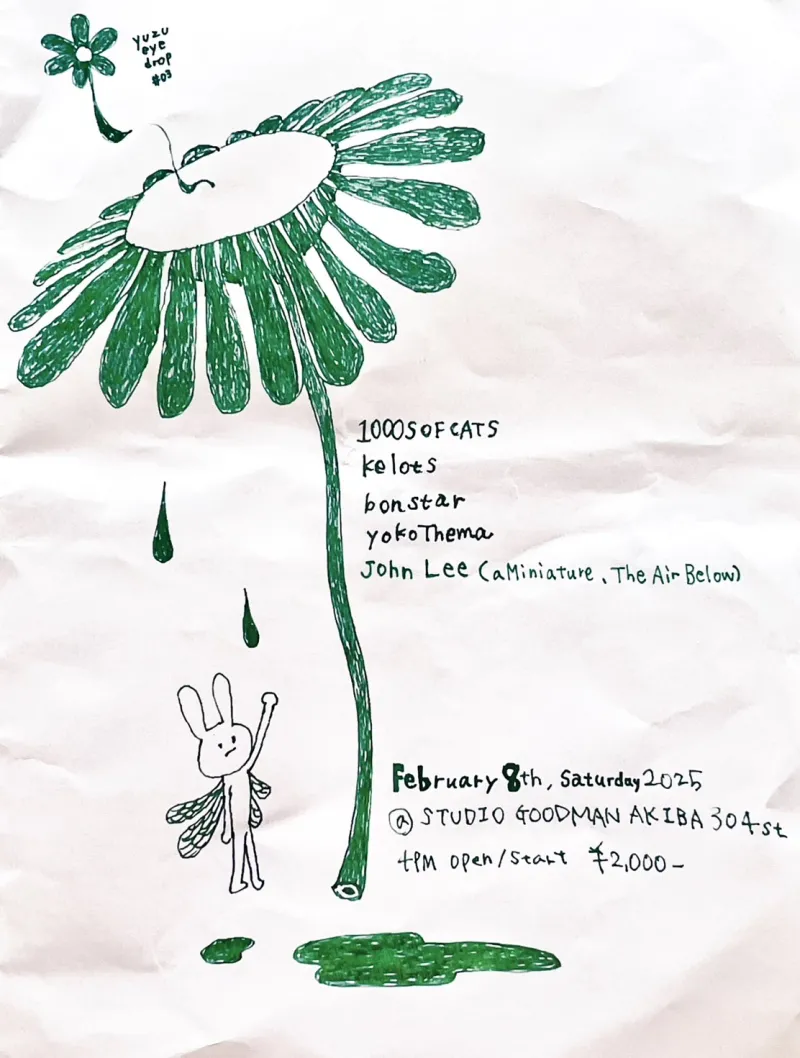 yuzu
eye
drop
#03
1000SOFCATS
kelots
bonstar
yokoThema
John Lee (aMiniature、The Air Below)
February 8th, Saturday 2025
@ STUDIO GOODMAN AKIBA 304st
4PM open/start ¥2,000-